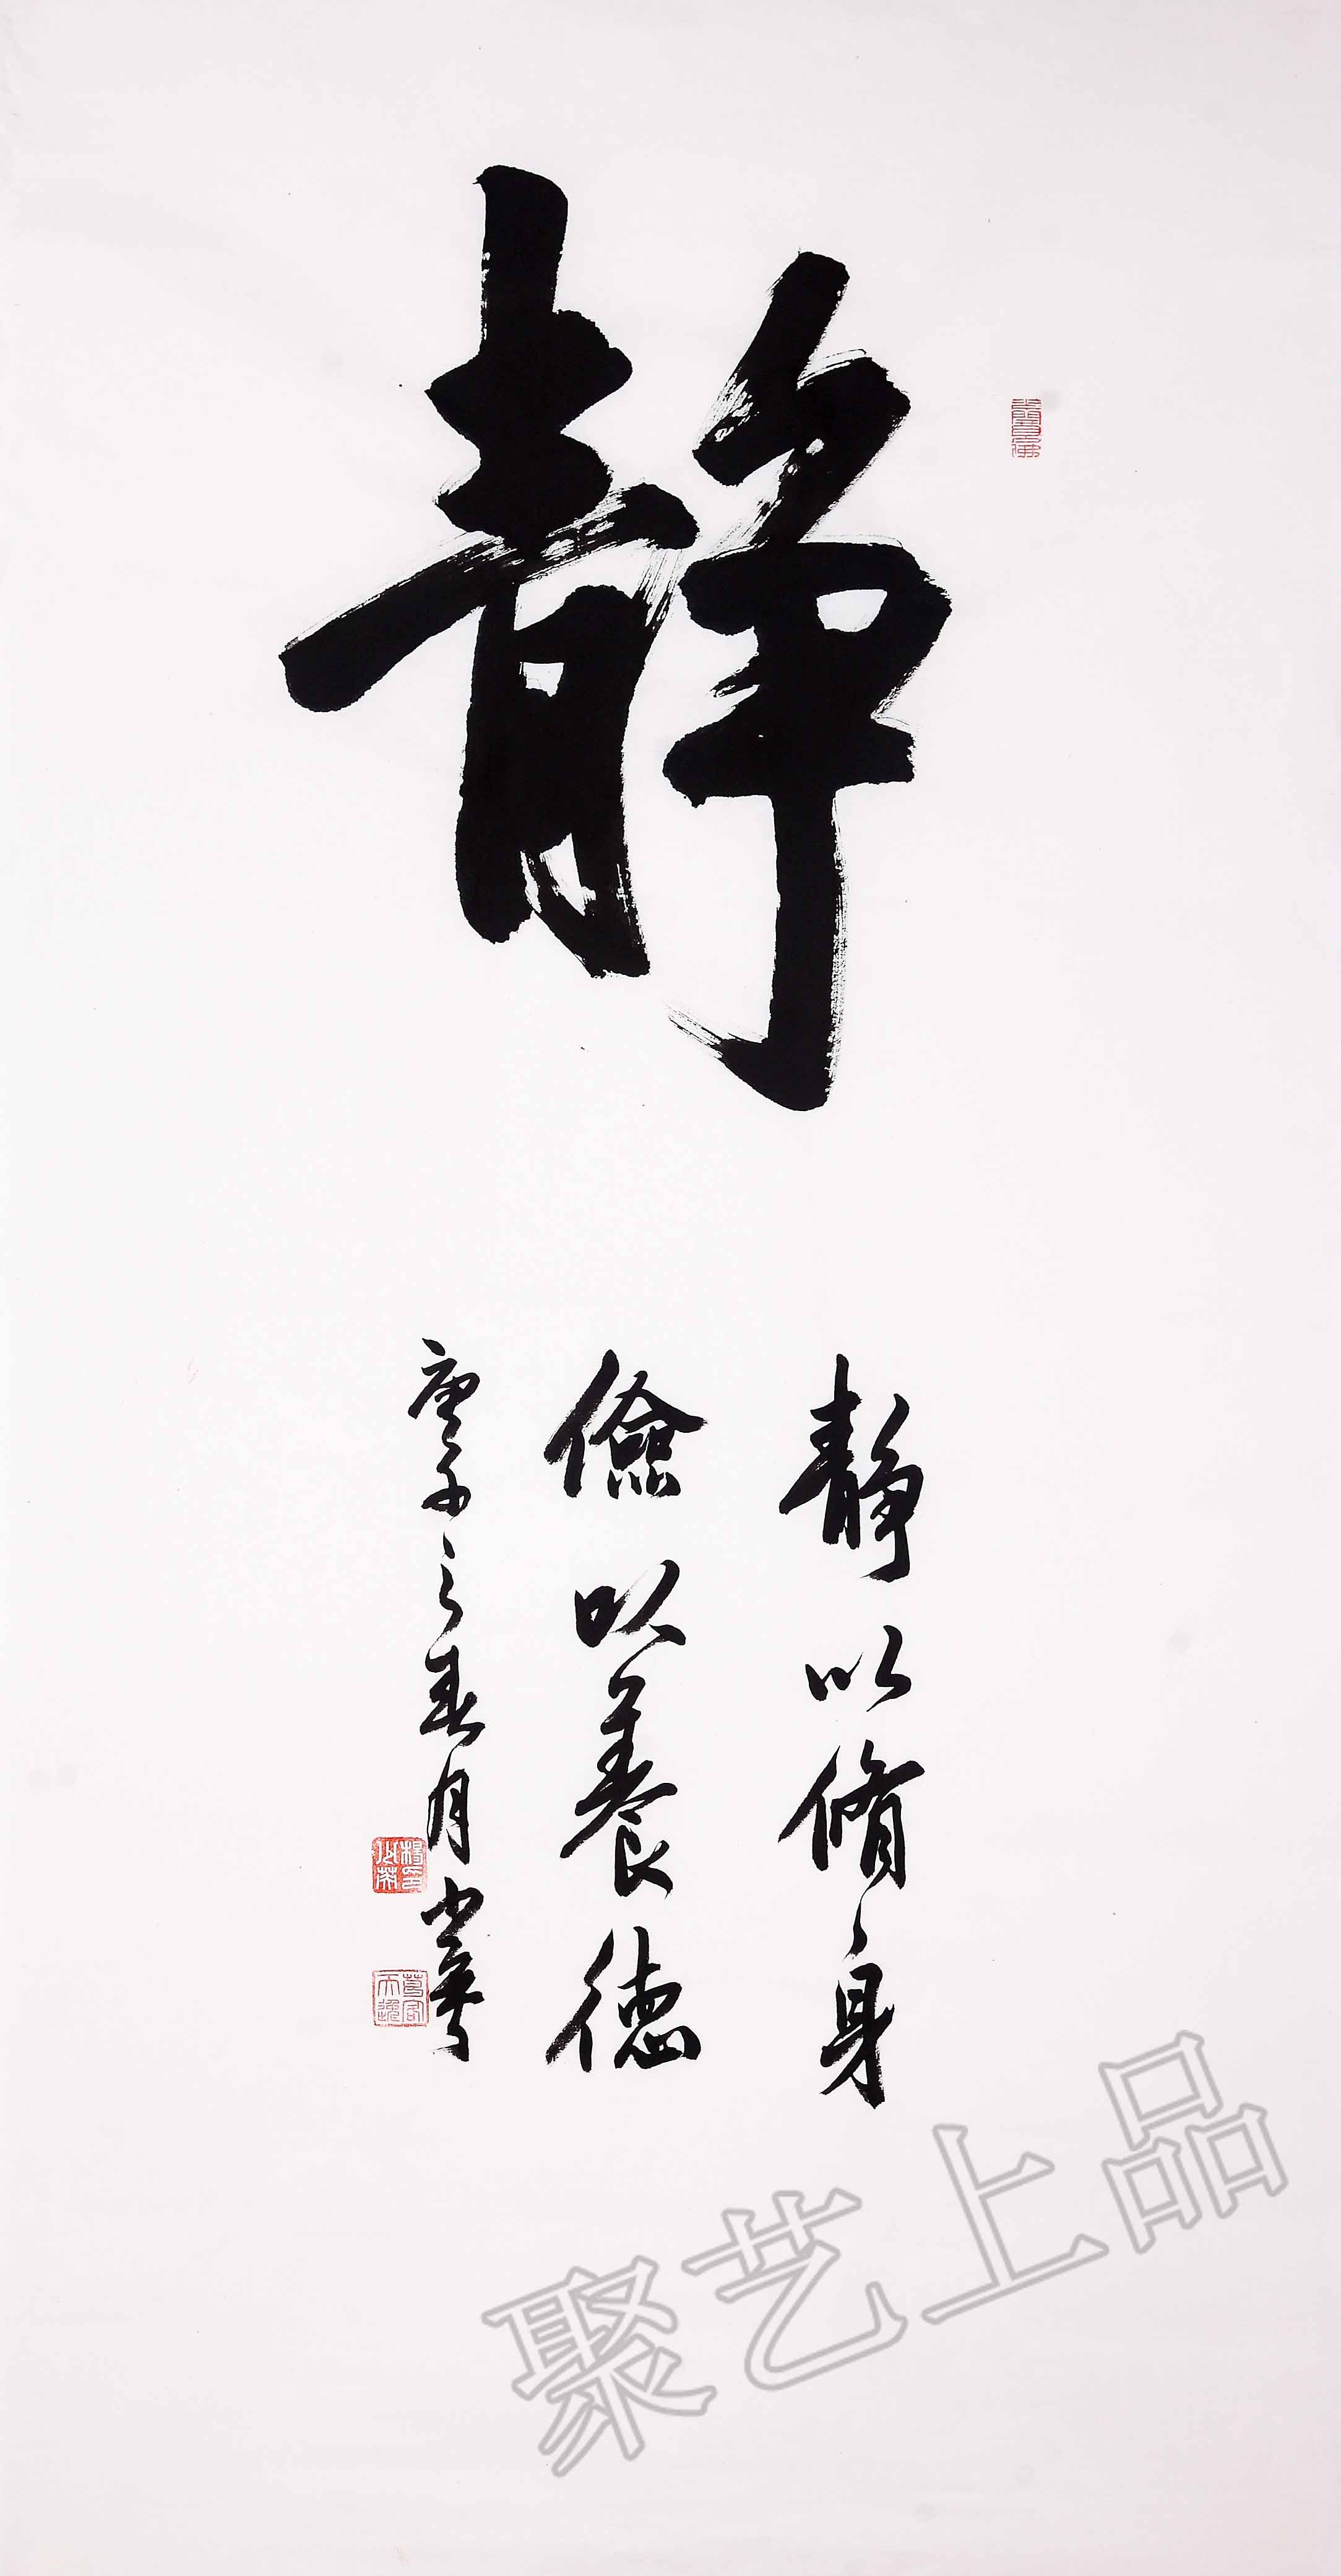 静
静以脩身
儉以養德
庚子之春月
聚艺上品